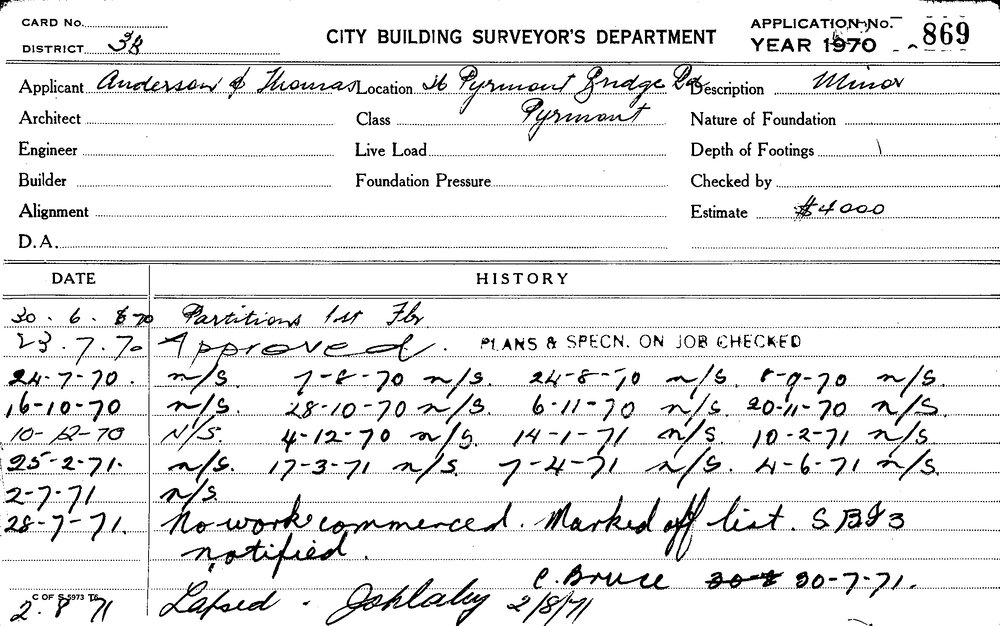 CARD No.
DISTRICT 3B
CITY BUILDING SURVEYOR'S DEPARTMENT
APPLICATION No. 869
YEAR 1970
Applicant Anderson & Thomas Location 26 Pyrmont Bridge Rd Description Minor
Architect Class Pyrmont Nature of Foundation
Engineer Live Load Depth of Footings
Builder Foundation Pressure Checked by
Alignment Estimate $4000
D.A.
DATE HISTORY
30.6.70 Partitions 1st Flr
23.7.70 Approved. PLANS & SPECN. ON JOB CHECKED
24-7-70. n/s. 7-8-70 n/s. 24-8-70 n/s. 8-9-70 n/s.
16-10-70 n/s. 28-10-70 n/s. 6-11-70 n/s 20-11-70 n/s.
10-12-70 N/S. 4-12-70 n/s. 14-1-71 n/s. 10-2-71 n/s.
25-2-71. n/s. 17-3-71 n/s. 7-4-71 n/s. 4-6-71 n/s.
2-7-71 n/s.
28-7-71. No work commenced. Marked off list. SBI3
notified.
C. Bruce 30-7-71.
C OF S 5973 T6
2.8.71 Lapsed. 2/8/71